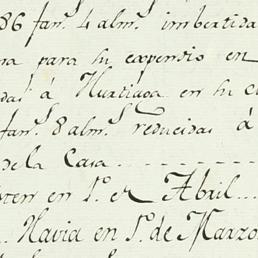 86 fan.s 4 alm.s imbertida
na para su expendio en
das a Hurtiaga en su c
fan.s 8 alm.s reducidas á
de la Casa - - - - - - -
sten en 1.o de Abril...
.. Havia en 1.o de Marzo